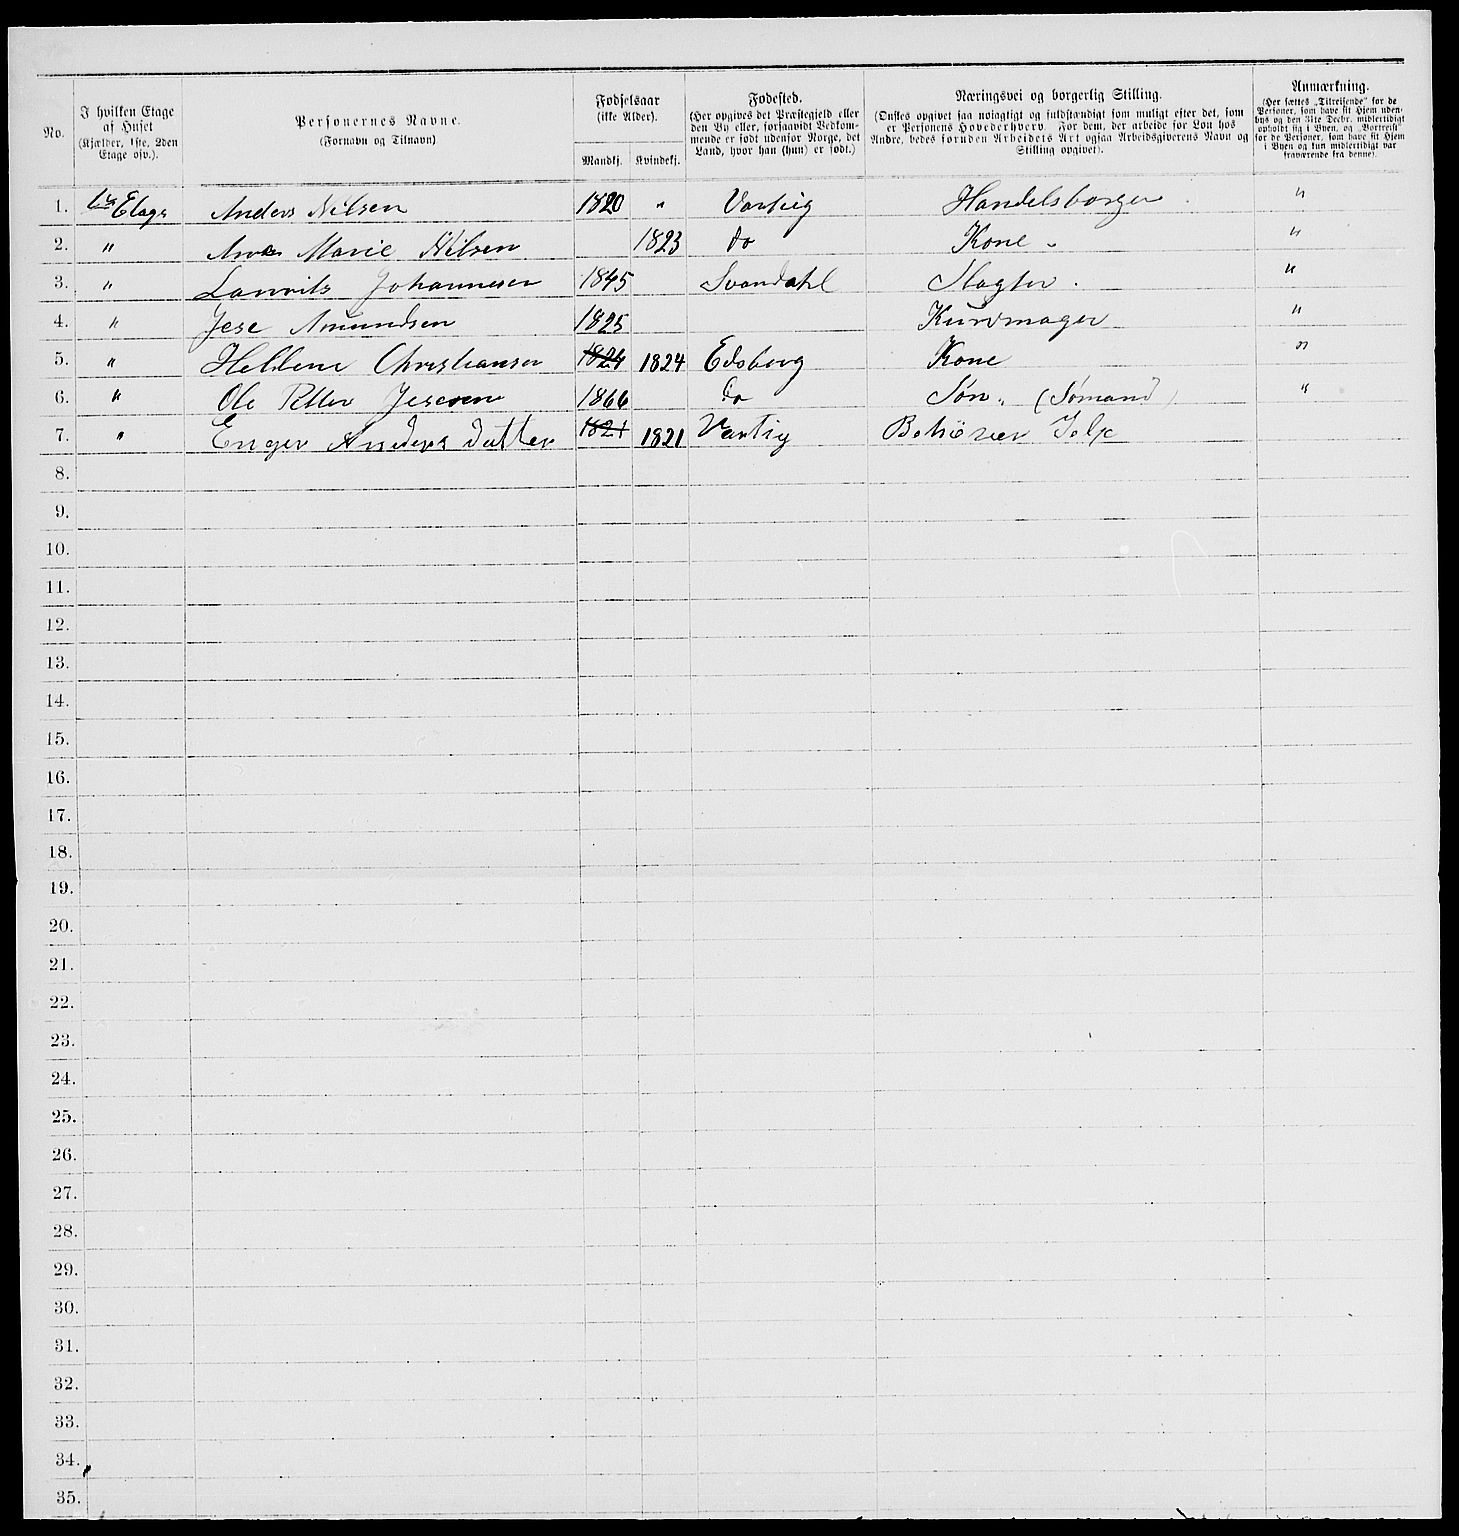 No.
I hvilken Etage
af Huset
(Kjælder, 1ste, 2den
Etage osv.).
Personernes Navne.
(Fornavn og Tilnavn)
Fødselsaar
(ikke Alder).
Mandkj. Kvindekj.
Fødested.
(Her opgives det Præstegjeld eller
den By eller, forsaavidt Vedkom-
mende er født udenfor Norge, det
Land, hvor han (hun) er født.)
Næringsvei og borgerlig Stilling.
(Ønskes opgivet saa nøiagtigt og fuldstændigt som muligt efter det, som
er Personens Hovederhverv. For dem, der arbeide for Løn hos
Andre, bedes foruden Arbeidets Art ogsaa Arbeidsgiverens Navn og
Stilling opgivet).
Anmærkning.
(Her sættes „Tilreisende" for de
Personer, som have sit Hjem uden-
bys og den 31te Decbr. midlertidigt
opholdt sig i Byen, og „Bortreist"
for de Personer, som have sit Hjem
i Byen og kun midlertidigt var
fraværende fra denne).
1. Etage Anders Nilsen 1820 " Varteig Handelsborger "
2. " Ane Marie Nilsen 1823 do Kone "
3. " Lauritz Johannesen 1845 Svandahl Slagter "
4. " Jese Amundsen 1825 Kurvmager "
5. " Hellene Christiansen 1824 1824 Edsberg Kone "
6. " Ole Petter Jesesen 1866 do Søn (Sømand) "
7. " Enger Anders datter 1821 1821 Varteig
8.
9.
10.
11.
12.
13.
14.
15.
16.
17.
18.
19.
20.
21.
22.
23.
24.
25.
26.
27.
28.
29.
30.
31.
32.
33.
34.
35.